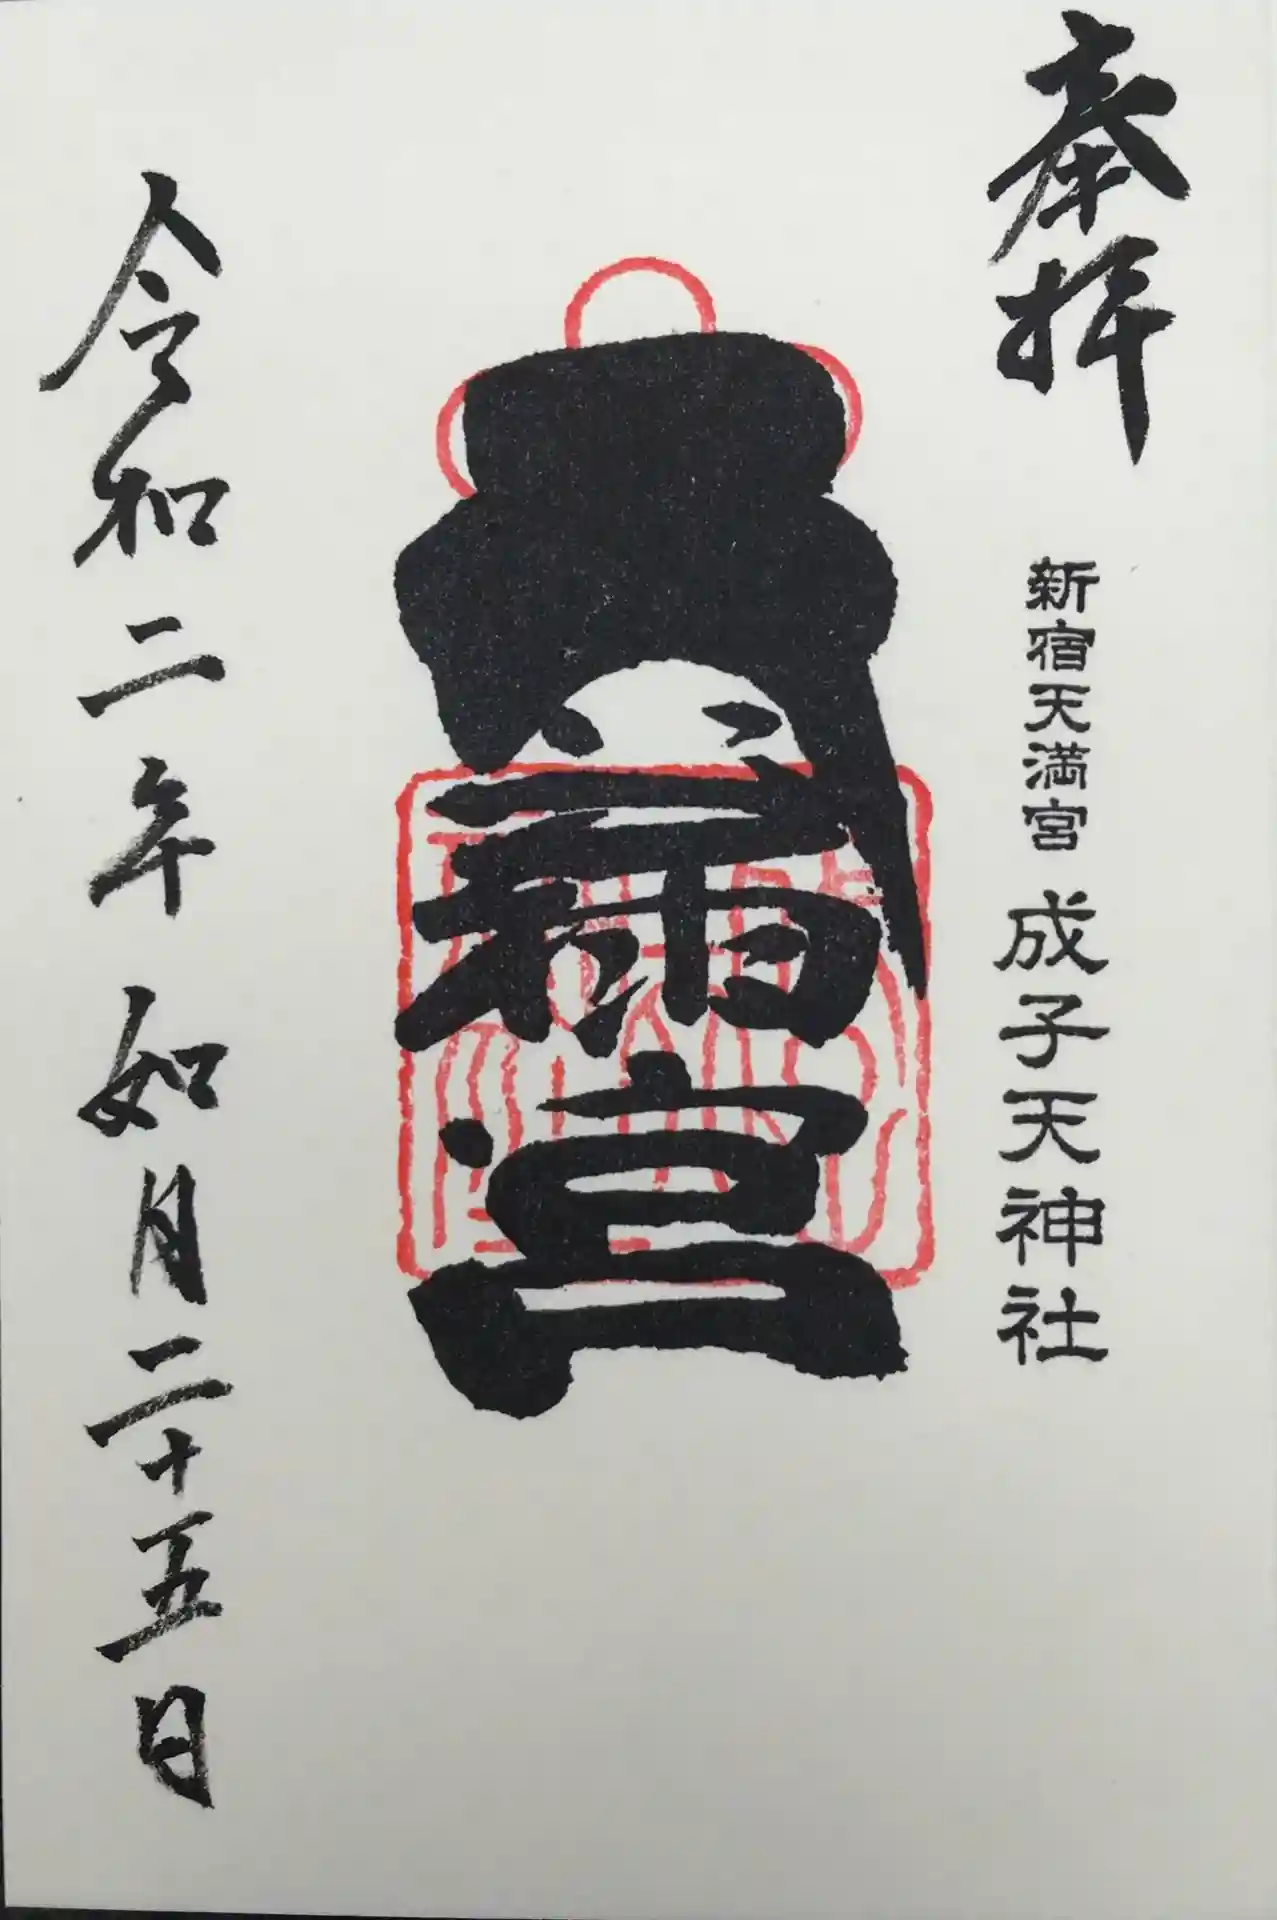 奉拝
新宿天満宮 成子天神社
天満宮
令和二年如月二十五日